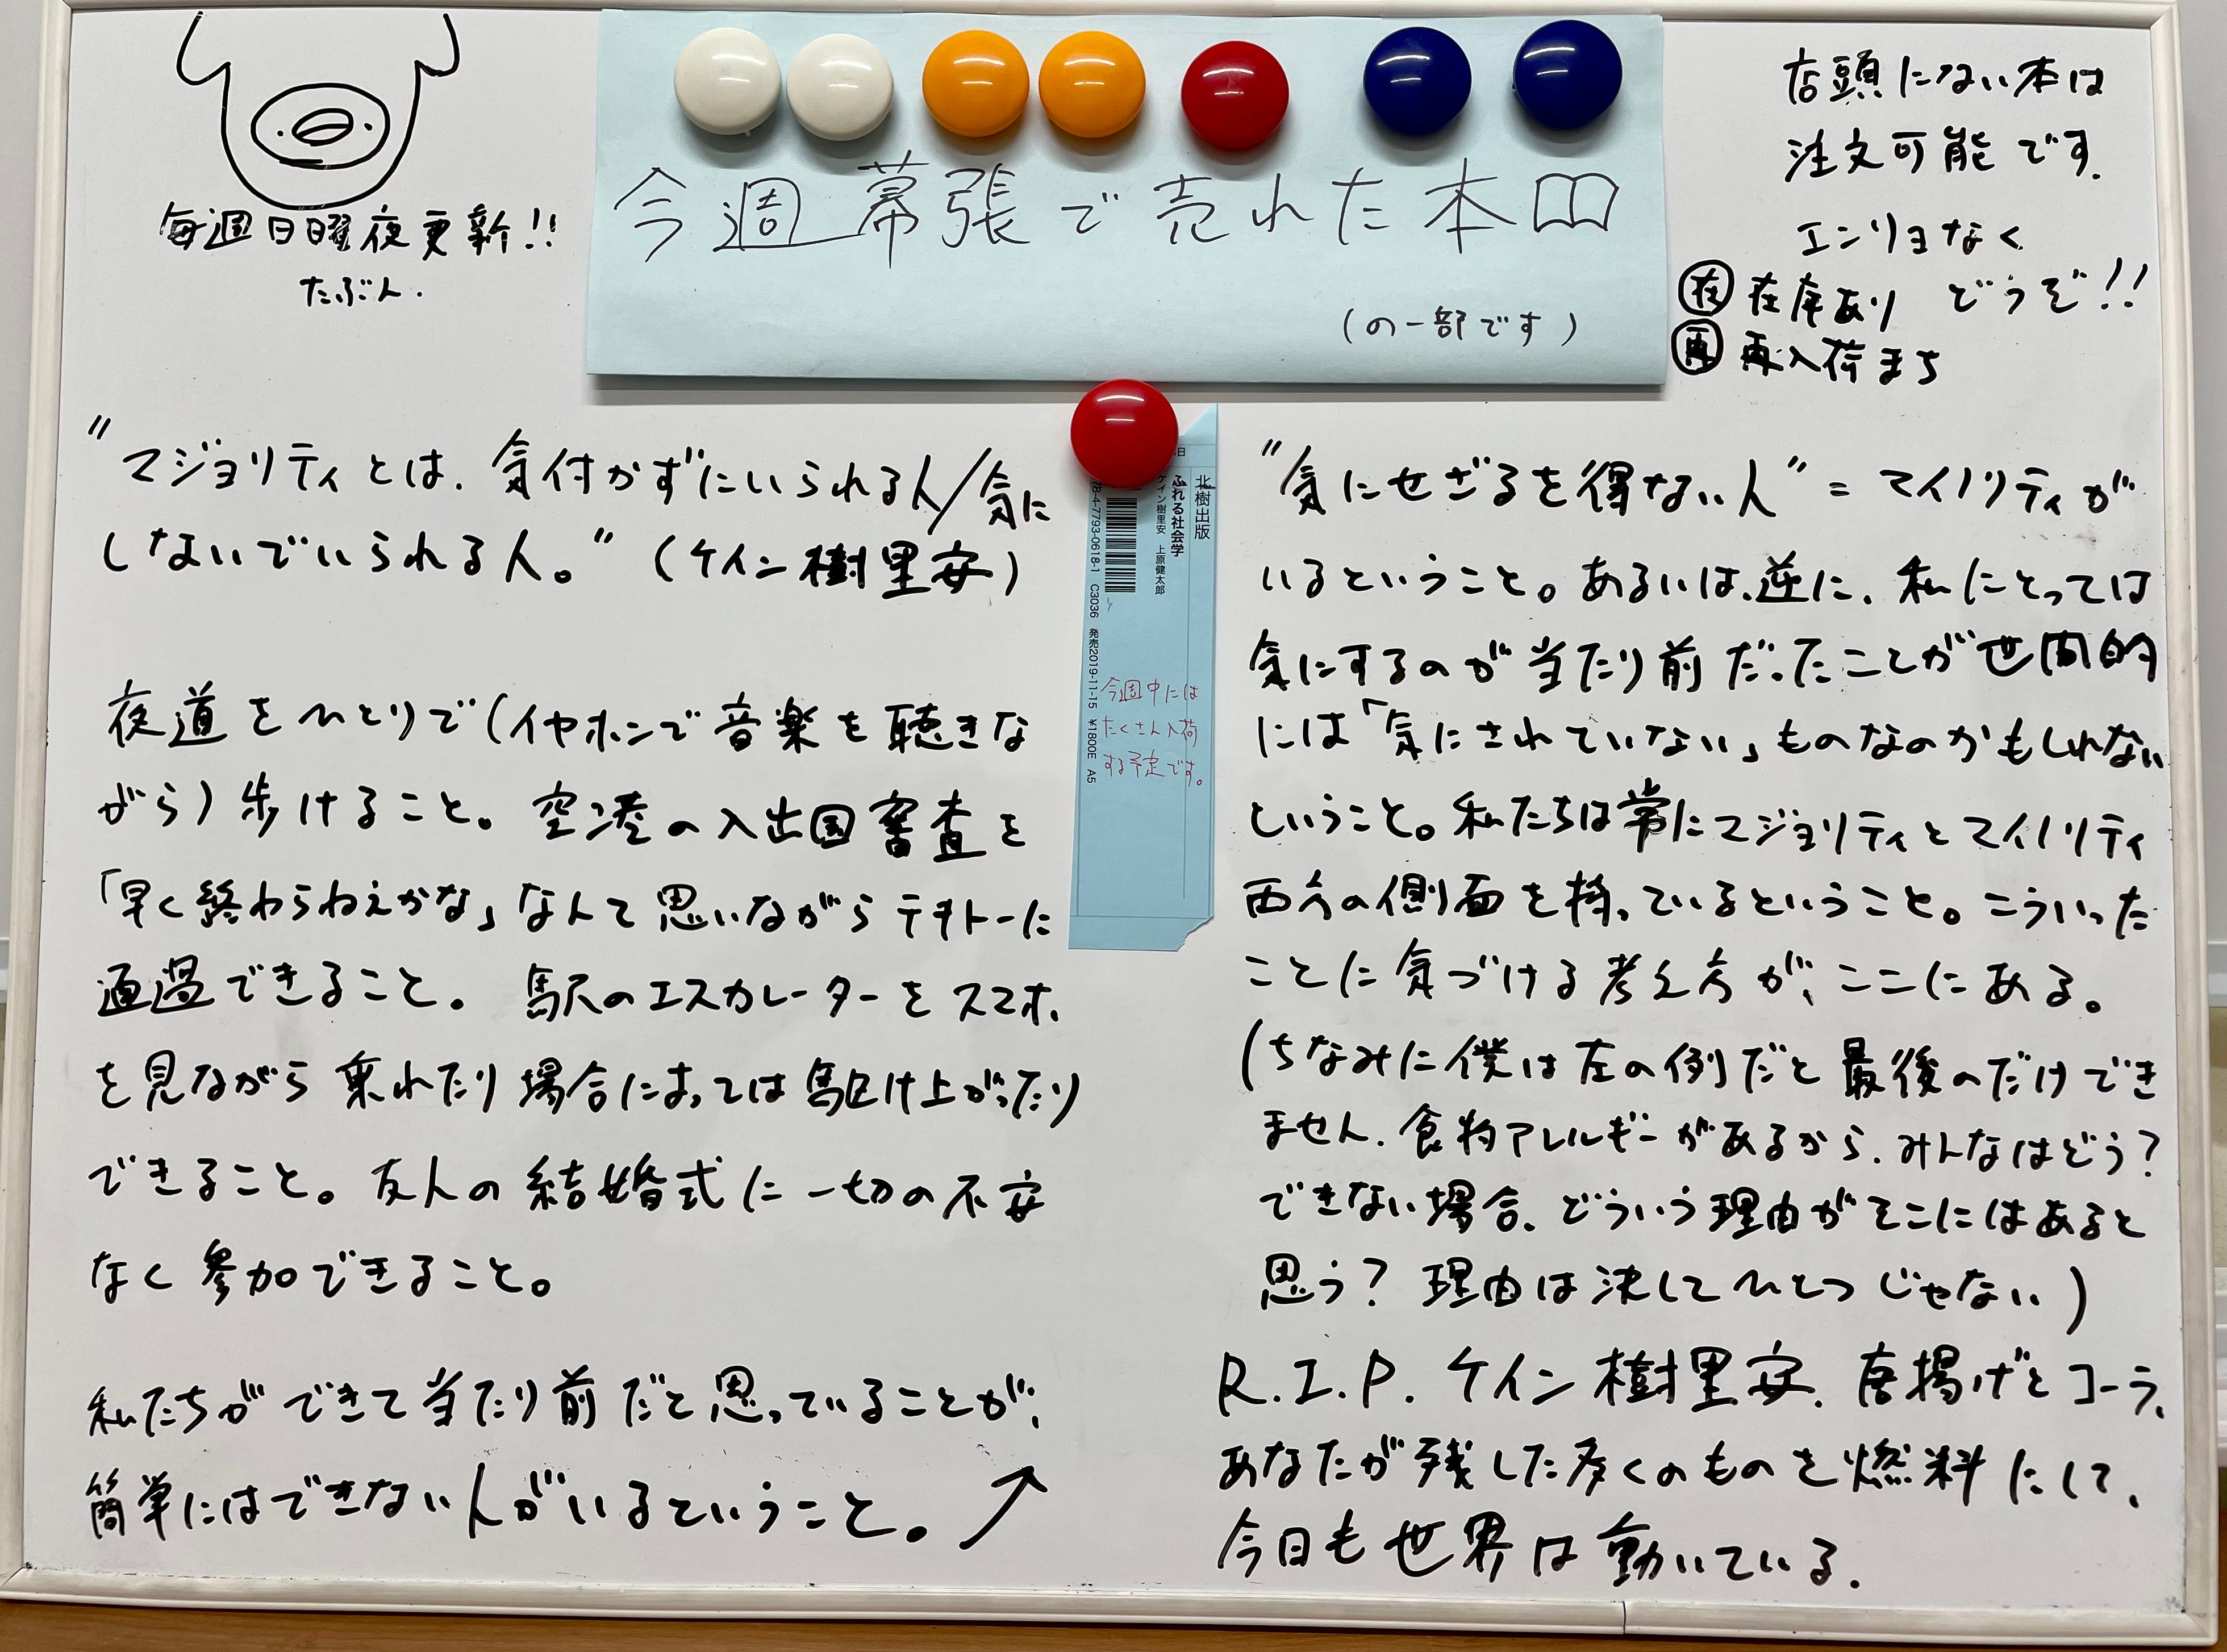 毎週日曜夜更新!!
たぶん.
今週幕張で売れた本
(の一部です)
店頭にない本は
注文可能です.
エンリョなく
どうぞ!!
在 在庫あり
再 再入荷まち
"マジョリティとは、気付かずにいられる人/気に
しないでいられる人。"(ケイン樹里安)
夜道をひとりで(イヤホンで音楽を聴きな
がら)歩けること。空港の入出国審査を
「早く終わらねえかな」なんて思いながらテキトーに
通過できること。駅のエスカレーターをスマホ
を見ながら乗れたり場合によっては駆け上がったり
できること。友人の結婚式に一切の不安
なく参加できること。
私たちができて当たり前だと思っていることが、
簡単にはできない人がいるということ。↗
北樹出版
ふれる社会学
ケイン樹里安 上原健太郎
78-4-7793-0618-1 C3036 発売2019-11-15 ¥1800E A5
今週中には
たくさん入荷
する予定です。
"気にせざるを得ない人"=マイノリティが
いるということ。あるいは、逆に、私にとっては
気にするのが当たり前だったことが世間的
には「気にされていない」ものなのかもしれない
ということ。私たちは常にマジョリティとマイノリティ
両方の側面を持っているということ。こういった
ことに気づける考え方が、ここにある。
(ちなみに僕は左の例だと最後のだけでき
ません.食物アレルギーがあるから.みんなはどう?
できない場合、どういう理由がそこにはあると
思う?理由は決してひとつじゃない)
R.I.P.ケイン樹里安.唐揚げとコーラ、
あなたが残した多くのものを燃料にして、
今日も世界は動いている.